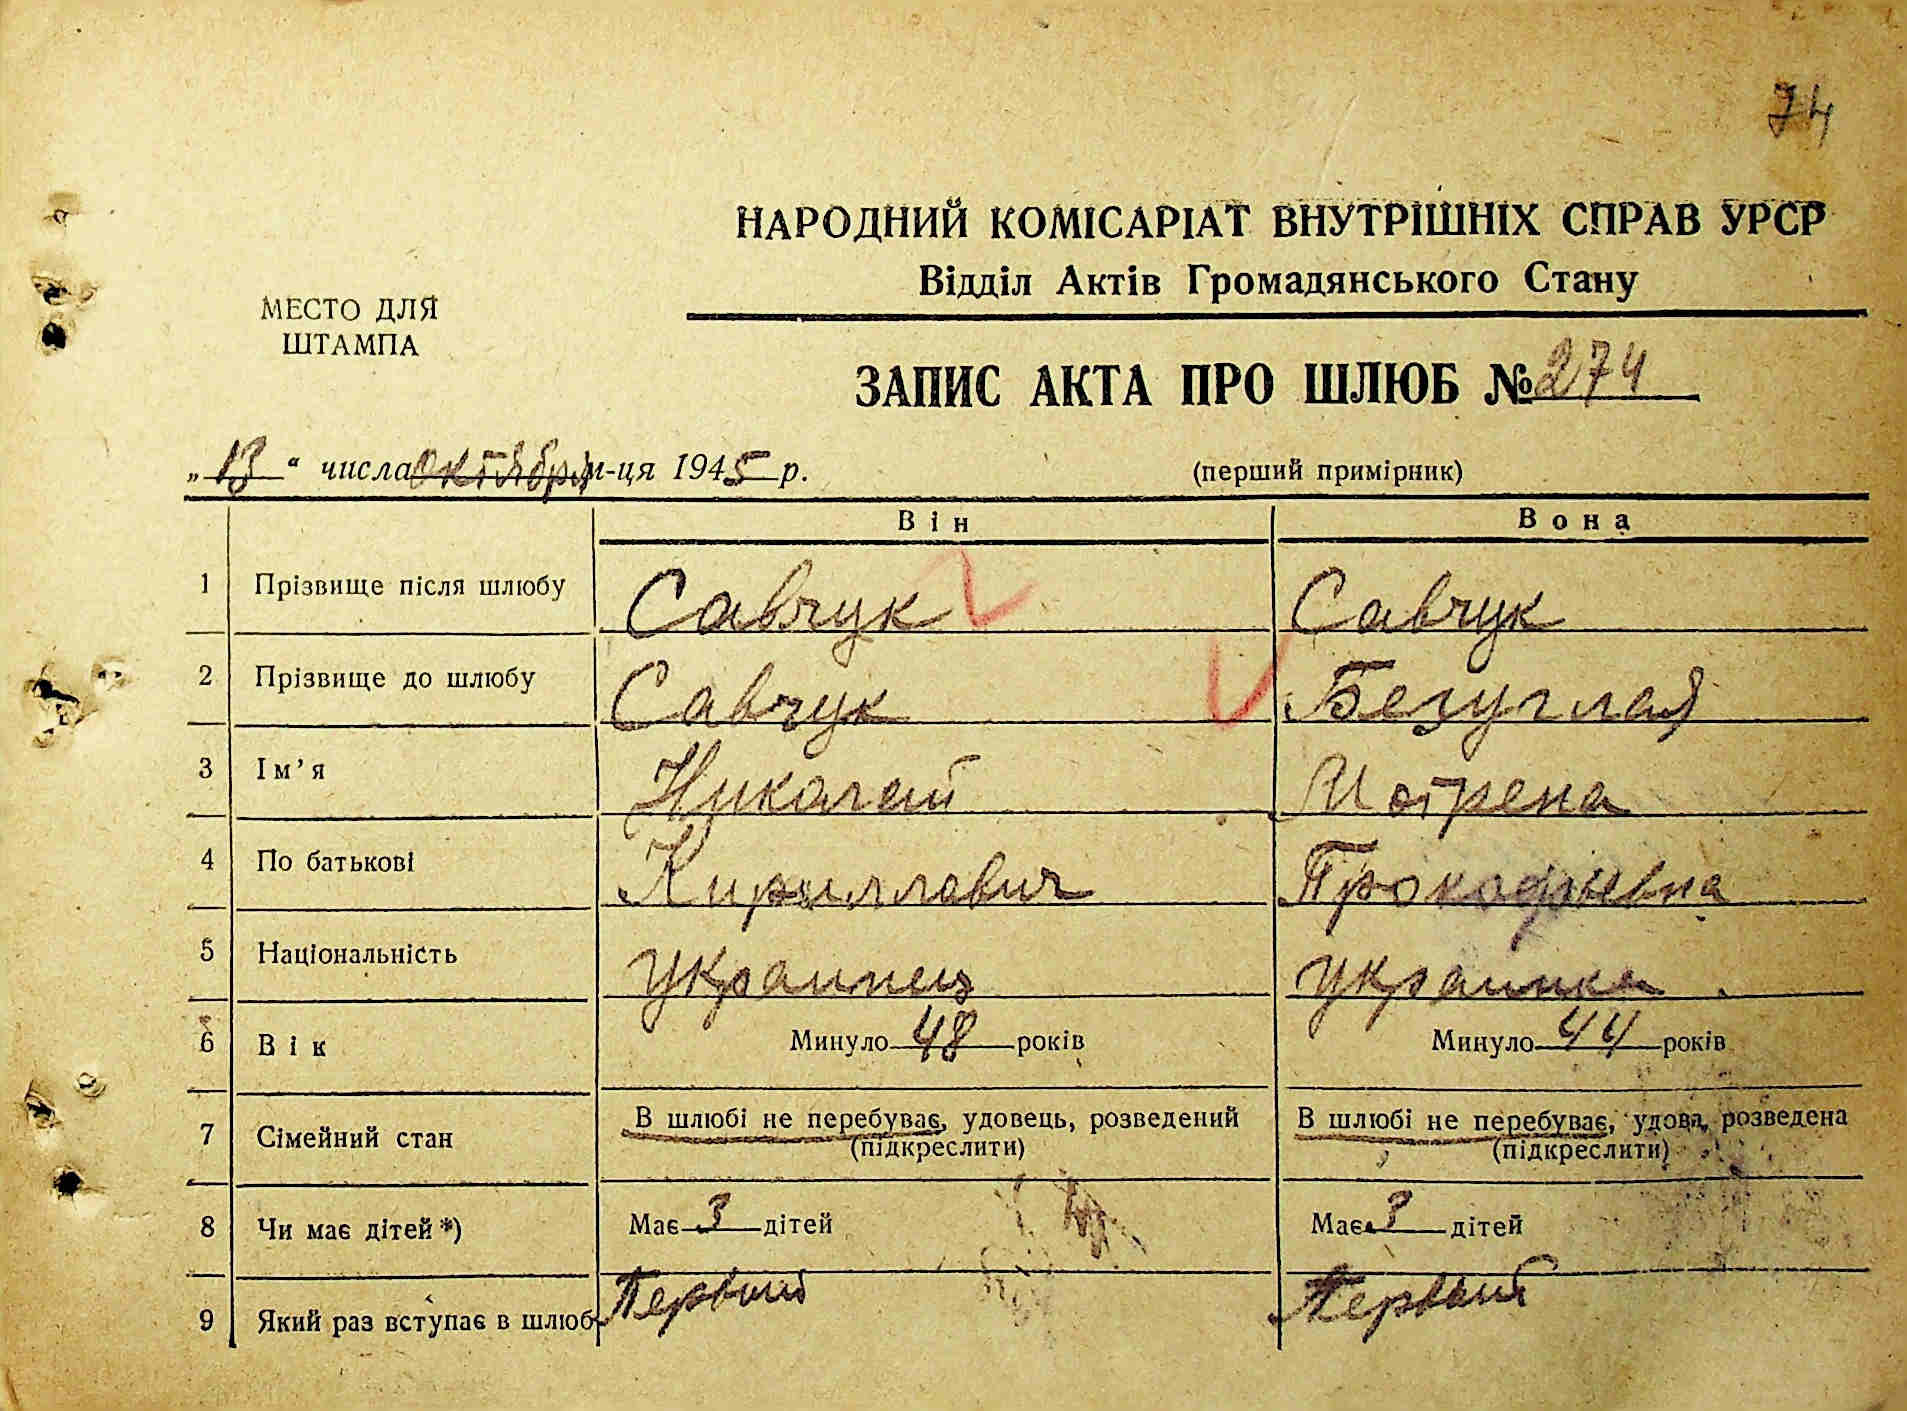 74
НАРОДНИЙ КОМІСАРІАТ ВНУТРІШНІХ СПРАВ УРСР
Відділ Актів Громадянського Стану
МЕСТО ДЛЯ
ШТАМПА
ЗАПИС АКТА ПРО ШЛЮБ № 274
„13“ числа октября м-ця 1945 р. (перший примірник)
Він Вона
1 Прізвище після шлюбу Савчук Савчук
2 Прізвище до шлюбу Савчук Безуглая
3 Ім’я Николай Мотрена
4 По батькові Кириллович Прокофьевна
5 Національність Украинец Украинка
6 Вік Минуло 48 років Минуло 44 років
7 Сімейний стан В шлюбі не перебуває, удовець, розведений В шлюбі не перебуває, удова, розведена
(підкреслити) (підкреслити)
8 Чи має дітей *) Має 3 дітей Має 3 дітей
9 Який раз вступає в шлюб Первый Первый